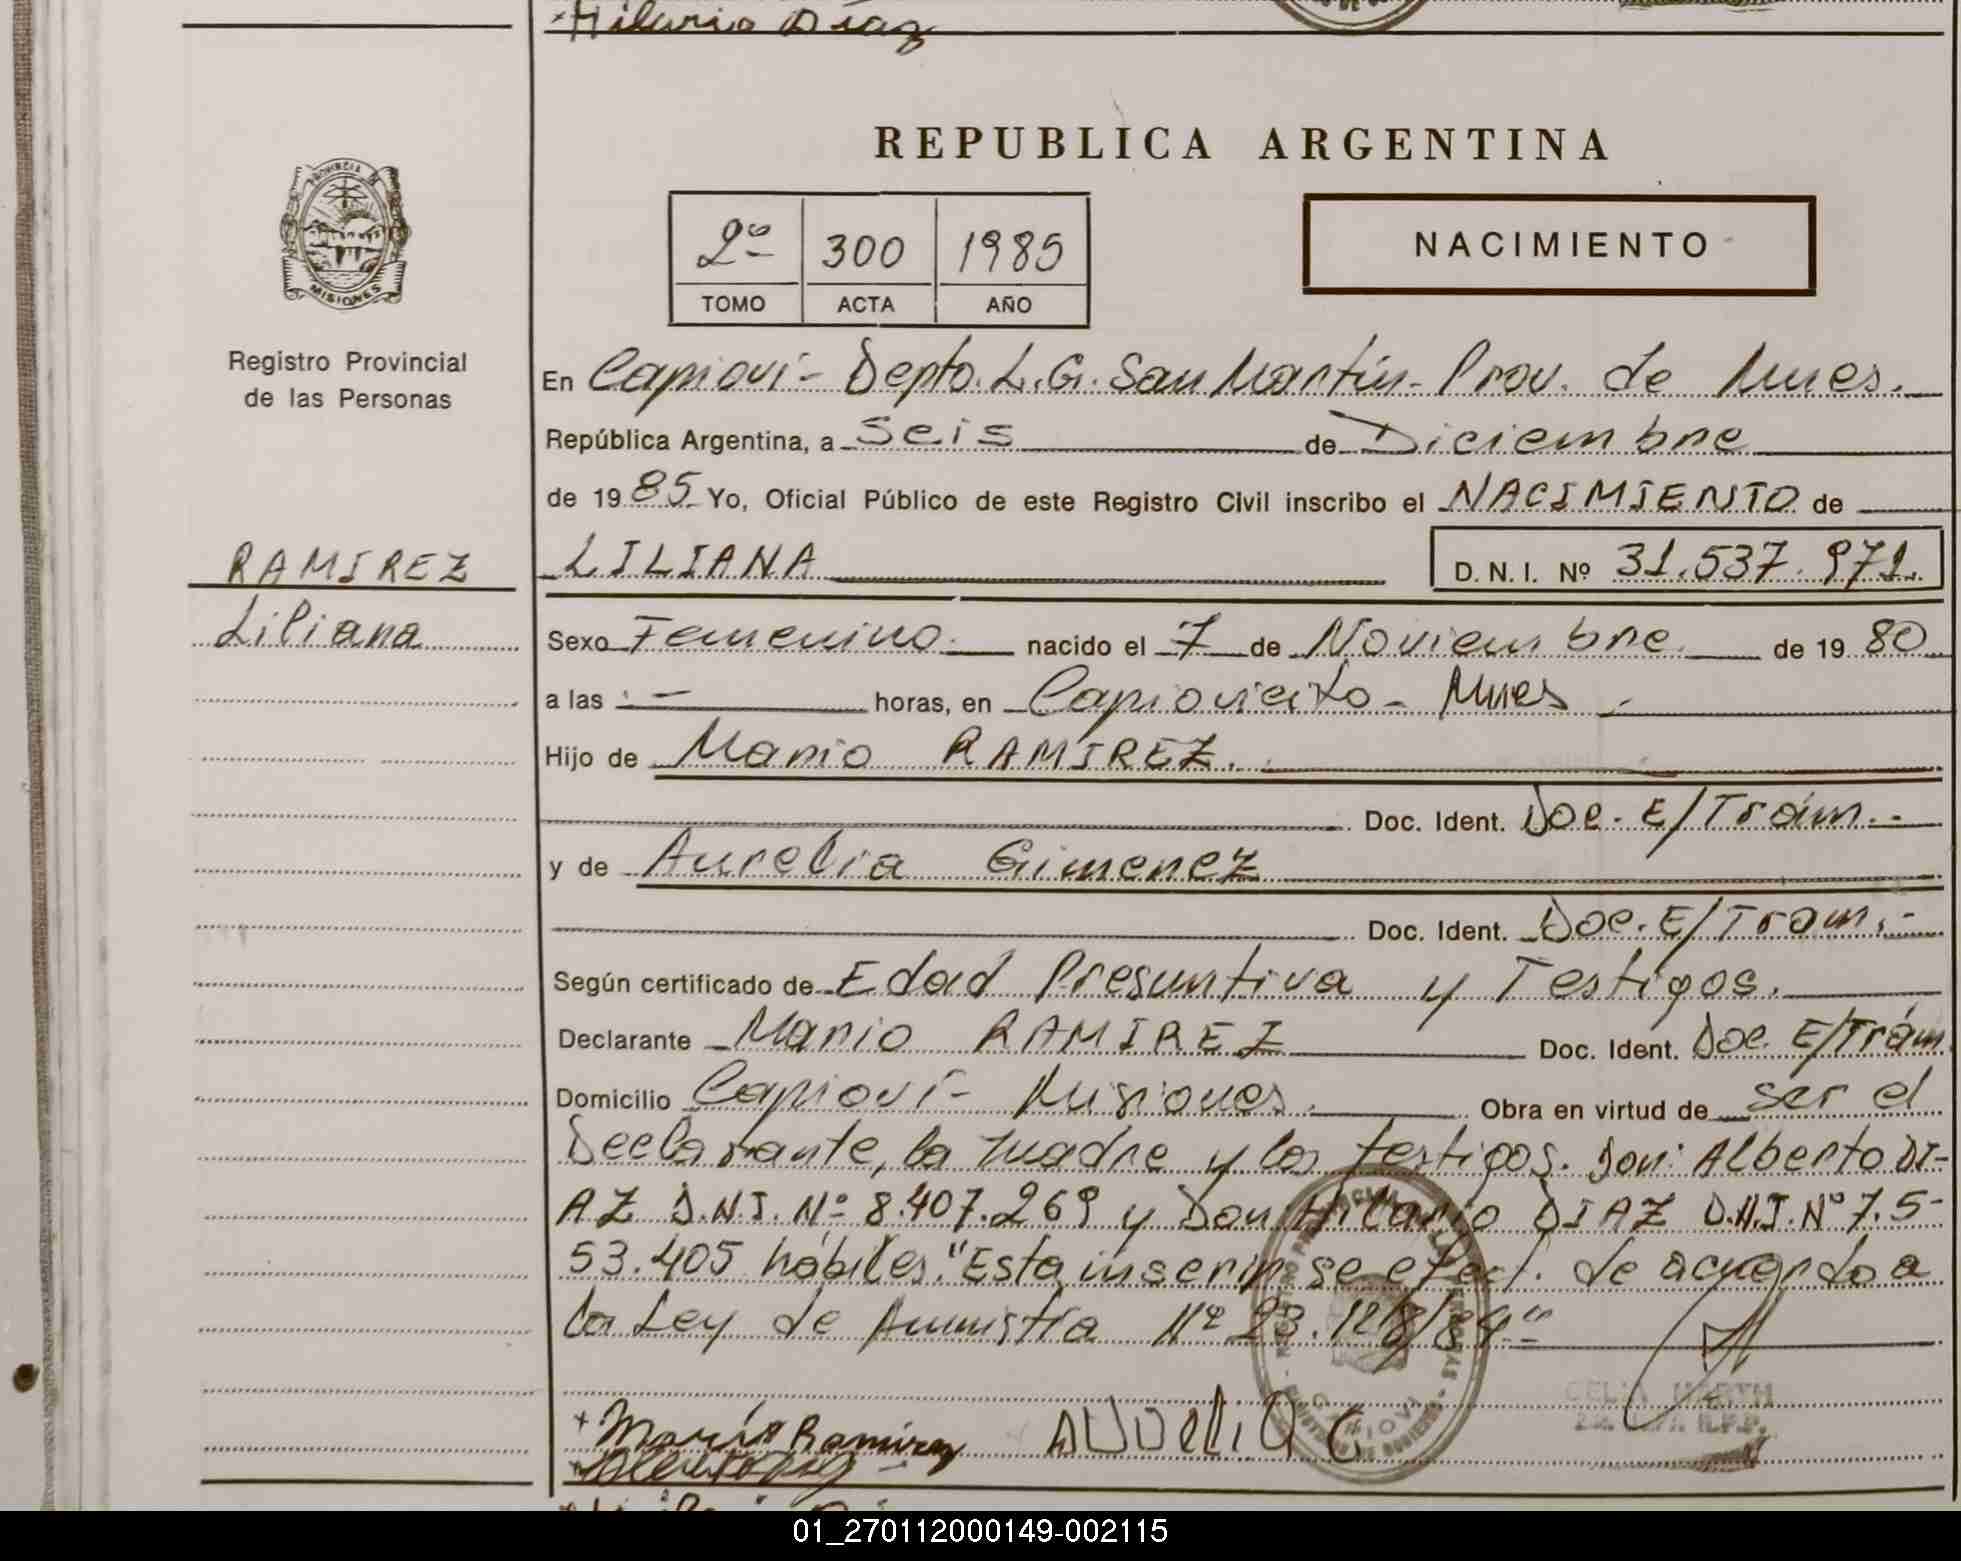 Hilario Diaz
REPUBLICA ARGENTINA
PROVINCIA DE
MISIONES
2º 300 1985
TOMO ACTA AÑO
NACIMIENTO
Registro Provincial
de las Personas
En Capioví - Depto. L. G. San Martín - Prov. de Mnes.
República Argentina, a Seis de Diciembre
de 1985 Yo, Oficial Público de este Registro Civil inscribo el NACIMIENTO de
RAMIREZ
LILIANA D. N. I. Nº 31.537.971.
Liliana
Sexo Femenino. nacido el 7 de Noviembre de 1980
a las . — horas, en Capiovicito - Mnes -
Hijo de Mario RAMIREZ.
Doc. Ident. Doc. E/Trám. -
y de Aurelia Gimenez
Doc. Ident. Doc. E/Tram. -
Según certificado de Edad Presuntiva y Testigos.
Declarante Mario RAMIREZ Doc. Ident. Doc. E/Trám.
Domicilio Capioví - Misiones. Obra en virtud de ser el
Declarante, la madre y los testigos. Don: Alberto DI-
AZ D.N.I. Nº 8.407.269 y Don Hilario DIAZ D.N.I. Nº 7.5-
53.405 hábiles. "Esta inscrip. se efect. de acuerdo a
la Ley de Amnistía Nº 23.128/84"
CAPIOVI
CELIA MARTH
+ Mario Ramirez AUUELIA G
01_270112000149-002115